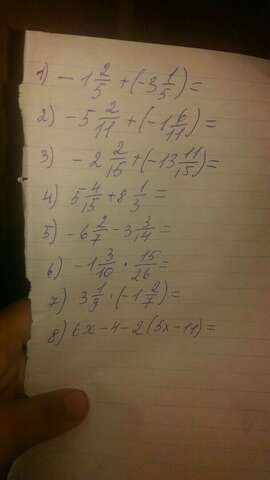 1) -1 2/5 + (-3 1/5) =
2) -5 2/11 + (-1 6/11) =
3) -2 2/15 + (-13 11/15) =
4) 5 4/15 + 8 1/3 =
5) -6 2/7 - 3 3/14 =
6) -1 3/10 · 15/26 =
7) 3 1/9 · (-1 2/7) =
8) 6x - 4 - 2(5x - 11) =